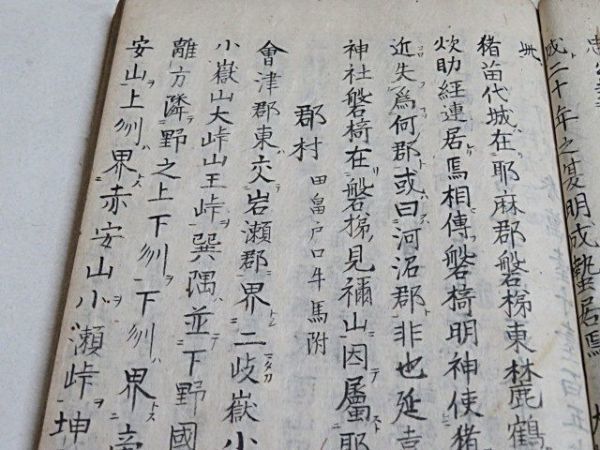 成二十年之夏明成蟄居焉
猪苗代城在耶麻郡磐梯東麓鶴
炊助經連居焉相傳磐椅明神使猪
近失為何郡或曰河沼郡非也延喜
神社磐椅在磐梯見禰山因屬耶
郡村 田畠戸口牛馬附
會津郡東交岩瀬郡界二岐嶽小
小嶽山大峠山王峠巽隅並下野國
離方隣野之上下刕下刕界帝
安山上刕界赤安山小瀬峠坤